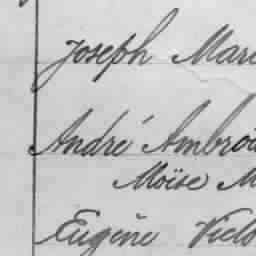 Joseph Mari
André Ambroi
Moïse M
Eugène Victo